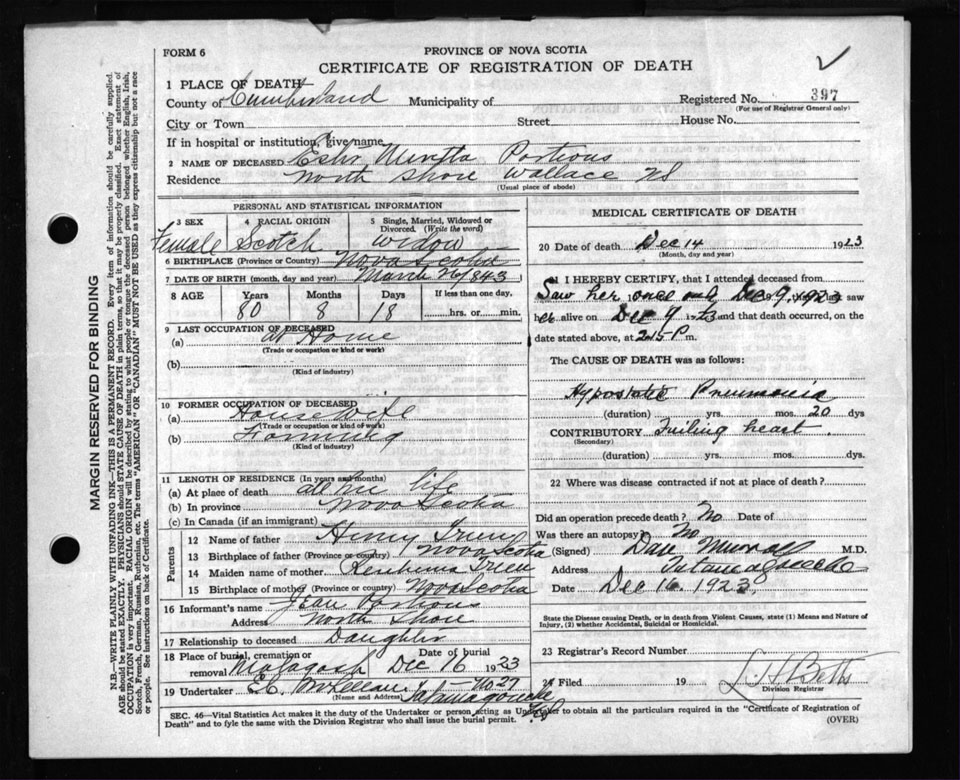 FORM 6
PROVINCE OF NOVA SCOTIA
CERTIFICATE OF REGISTRATION OF DEATH
1 PLACE OF DEATH
County of Cumberland Municipality of Registered No. 397
(For use of Registrar General only)
City or Town Street House No.
If in hospital or institution, give name
2 NAME OF DECEASED Portious
Residence North Shore Wallace NS
(Usual place of abode)
PERSONAL AND STATISTICAL INFORMATION
3 SEX Female
4 RACIAL ORIGIN Scotch
5 Single, Married, Widowed or Divorced. (Write the word) widow
6 BIRTHPLACE (Province or Country) Nova Scotia
7 DATE OF BIRTH (month, day and year) March 26 1843
8 AGE Years Months Days If less than one day.
80 8 18 hrs. or min.
9 LAST OCCUPATION OF DECEASED
(a) at Home
(Trade or occupation or kind or work)
(b)
(Kind of industry)
10 FORMER OCCUPATION OF DECEASED
(a) Housewife
(Trade or occupation or kind of work)
(b) Farming
(Kind of industry)
11 LENGTH OF RESIDENCE (In years and months)
(a) At place of death all her life
(b) In province Nova Scotia
(c) In Canada (if an immigrant)
Parents
12 Name of father Henry
13 Birthplace of father (Province or country) Nova Scotia
14 Maiden name of mother
15 Birthplace of mother (Province or country) Nova Scotia
16 Informant's name Portious
Address North Shore
17 Relationship to deceased Daughter
18 Place of burial, cremation or removal Malagash Date of burial Dec 16 1923
19 Undertaker No 27
(Name and Address) Tatamagouche NS
MEDICAL CERTIFICATE OF DEATH
20 Date of death Dec 14 1923
(Month, day and year)
I HEREBY CERTIFY, that I attended deceased from
Saw her once only Dec 9, 1923 saw
her alive on Dec 9 1923 and that death occurred, on the
date stated above, at 2.15 P m.
The CAUSE OF DEATH was as follows:
Hypostatic Pneumonia
(duration) yrs. mos. 20 dys
CONTRIBUTORY Failing heart.
(Secondary)
(duration) yrs. mos. dys.
22 Where was disease contracted if not at place of death?
Did an operation precede death? No Date of
Was there an autopsy? No
(Signed) Dan Murray M.D.
Address Tatamagouche
Date Dec 16. 1923.
State the Disease causing Death, or in death from Violent Causes, state (1) Means and Nature of Injury, (2) whether Accidental, Suicidal or Homicidal.
23 Registrar's Record Number
24 Filed 19
Division Registrar
SEC. 46—Vital Statistics Act makes it the duty of the Undertaker or person acting as Undertaker to obtain all the particulars required in the "Certificate of Registration of
Death" and to fyle the same with the Division Registrar who shall issue the burial permit.
(OVER)
MARGIN RESERVED FOR BINDING
N.B.—WRITE PLAINLY WITH UNFADING INK—THIS IS A PERMANENT RECORD. Every item of information should be carefully supplied.
AGE should be stated EXACTLY. PHYSICIANS should STATE CAUSE OF DEATH in plain terms, so that it may be properly classified. Exact statement of
OCCUPATION is very important. RACIAL ORIGIN will be described by stating to what people or tongue the deceased person belonged whether English, Irish,
Scotch, French, German, Russian, Ruthenian, etc. The terms "AMERICAN" OR "CANADIAN" MUST NOT BE USED as they express citizenship but not a race
or people. See instructions on back of Certificate.